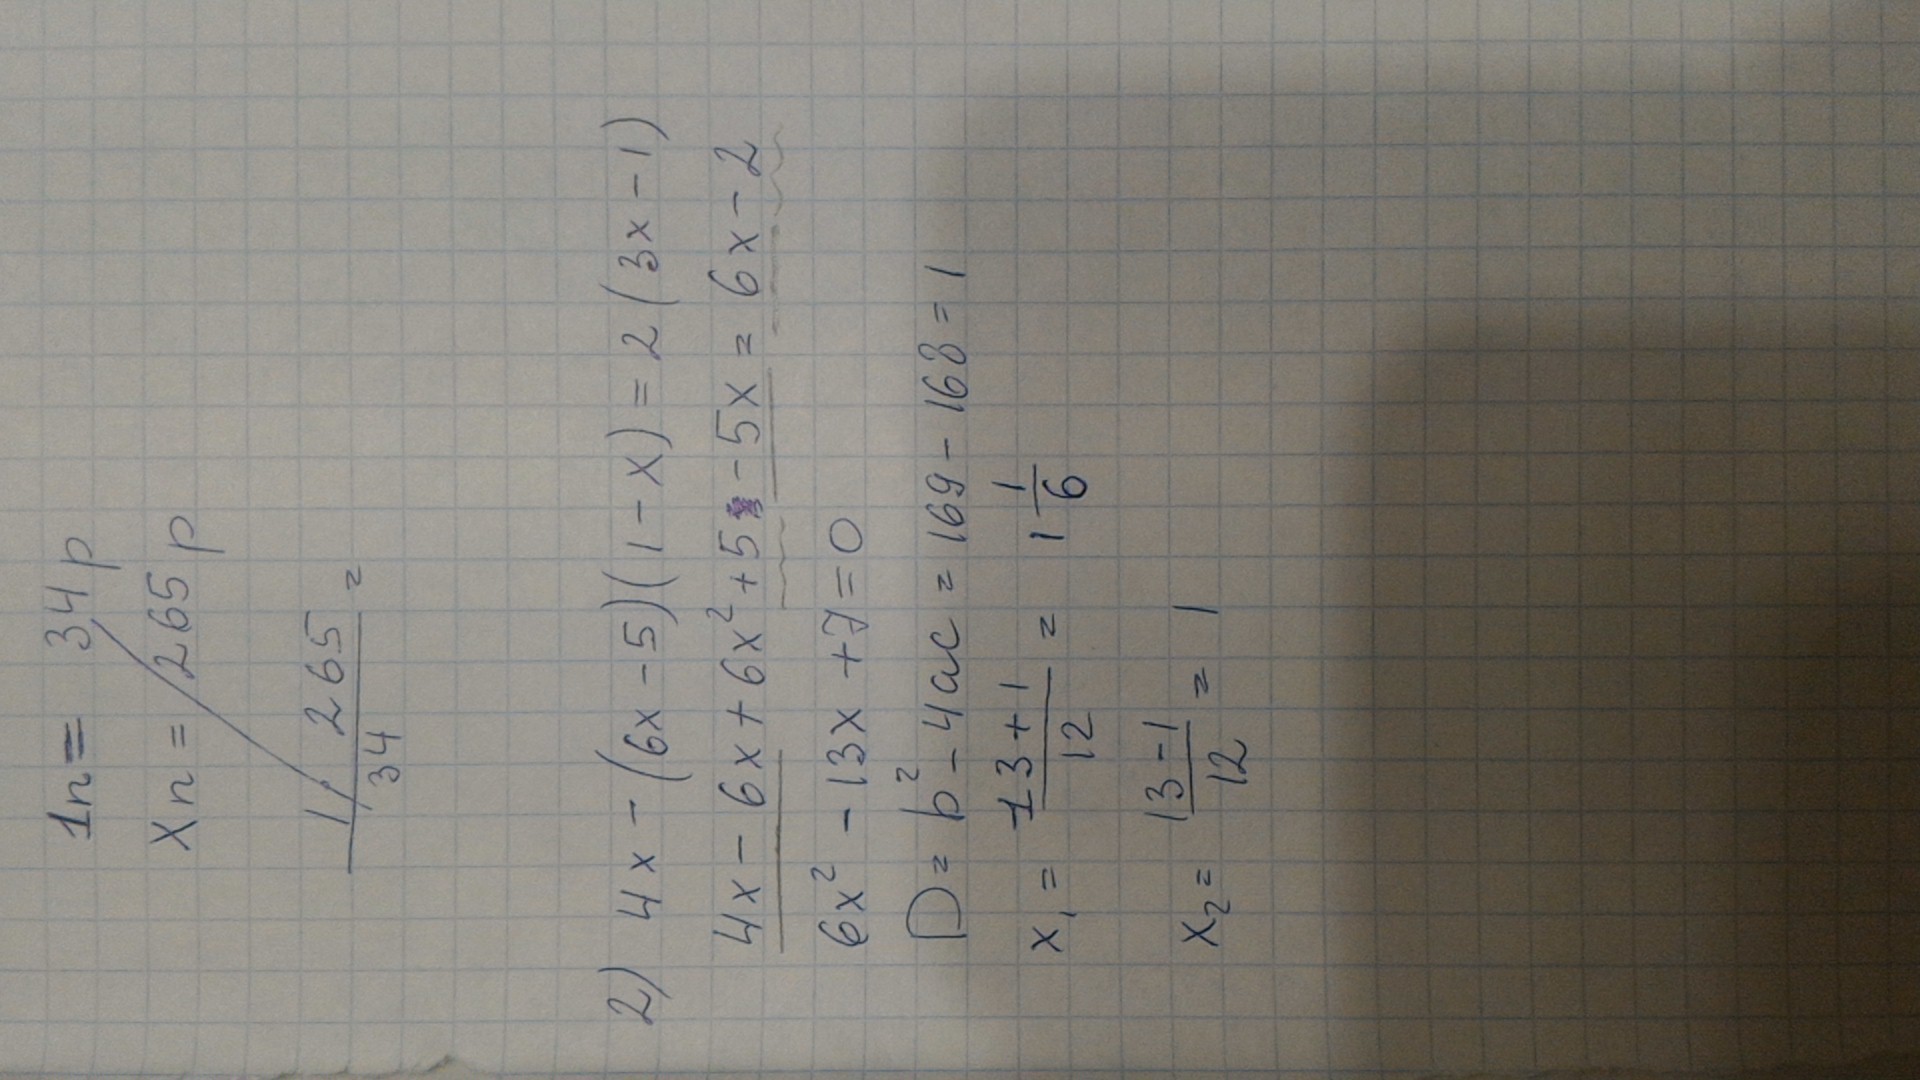 1п = 34 р
Xп = 265 р
1 265 =
34
2) 4x - (6x - 5)(1 - x) = 2(3x - 1)
4x - 6x + 6x² + 5 - 5x = 6x - 2
6x² - 13x + 7 = 0
D = b² - 4ac = 169 - 168 = 1
x₁ = 13 + 1 / 12 = 1 1/6
x₂ = 13 - 1 / 12 = 1